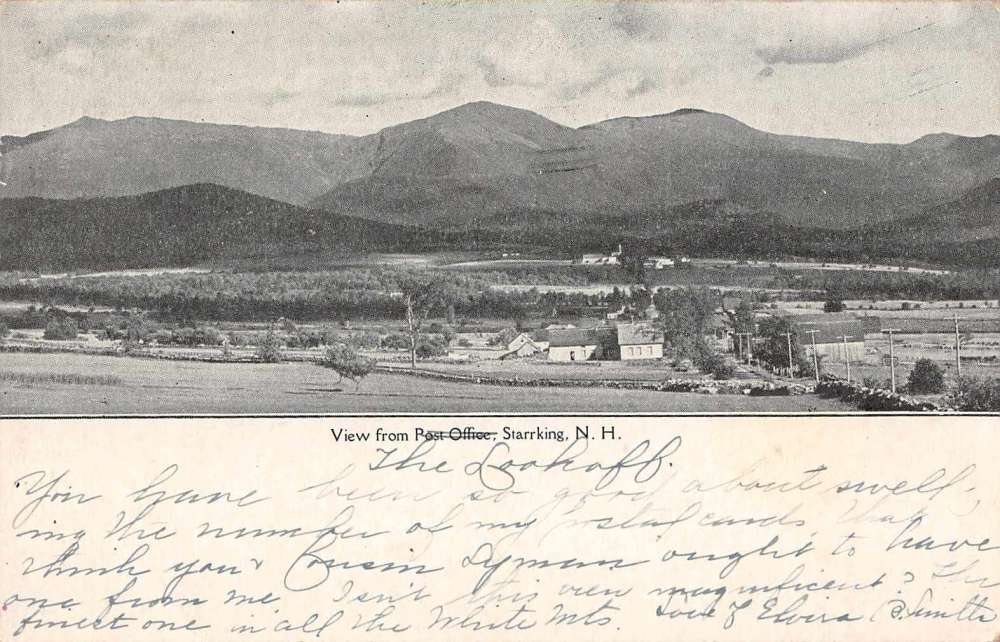 View from Post Office, Starrking, N. H.
The Lookoff.
You have been so good about swell-
ing the number of my postal cards that
I think you & Cousin Lyman ought to have
one from me. Isn't this view magnificent? The
finest one in all the White Mts. Love of Elvira B. Smith